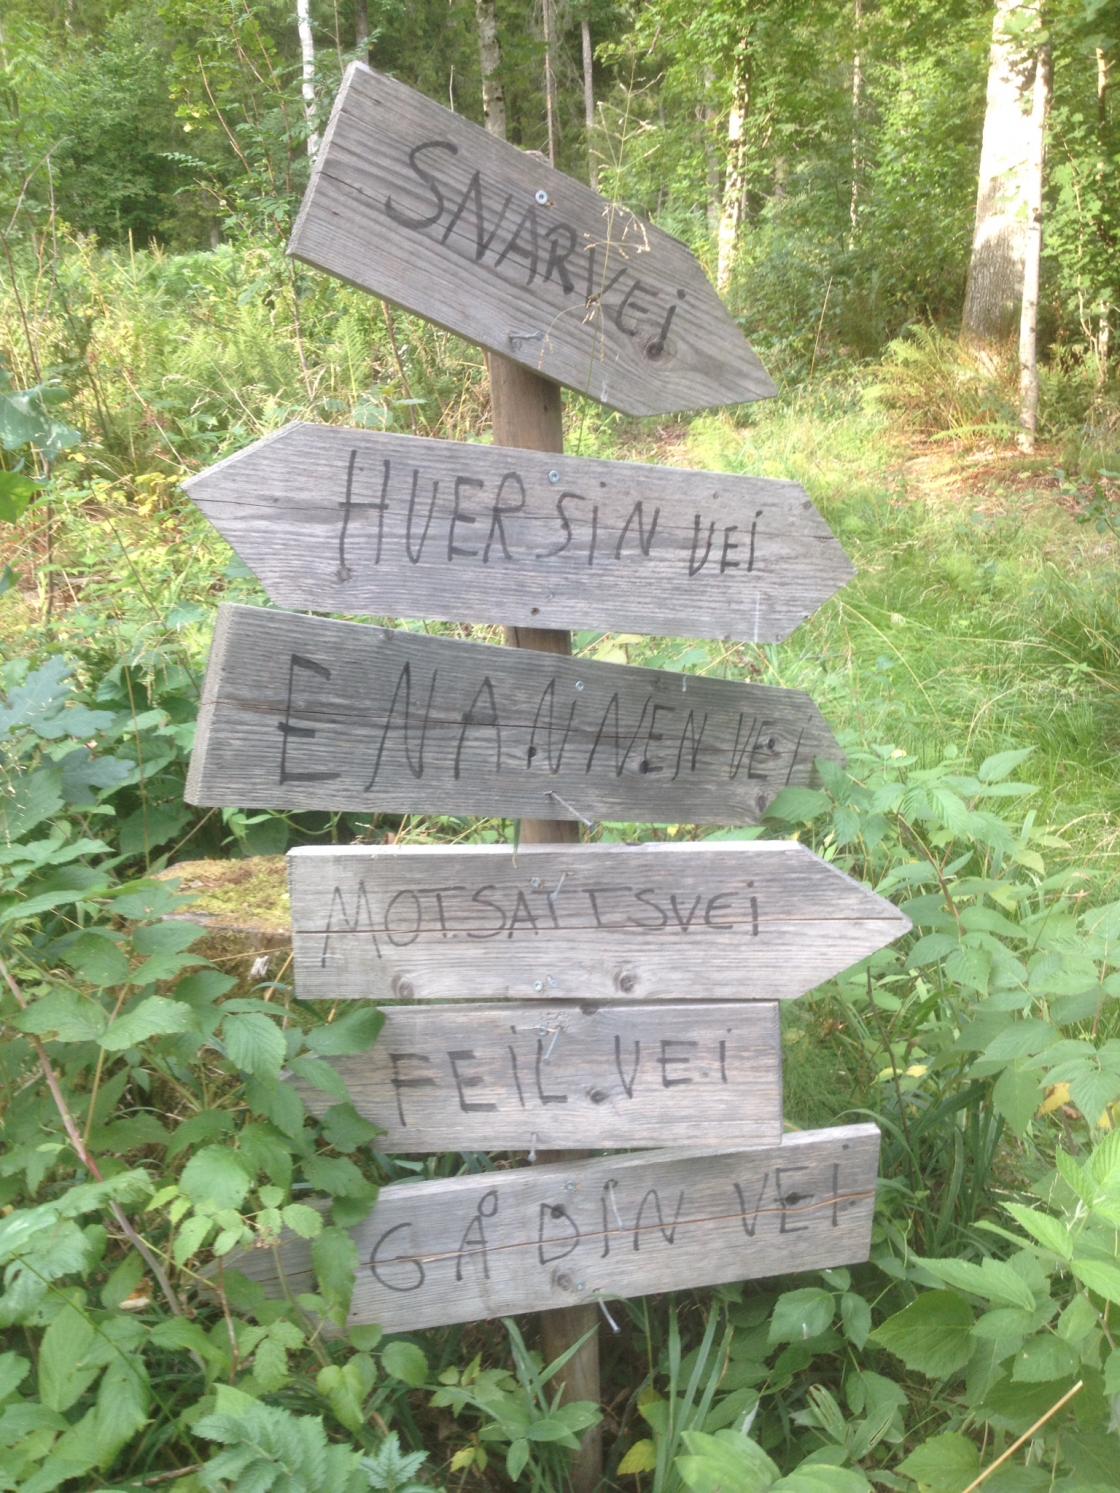 SNARVEi
HUER SiN VEi
EN ANNEN VEi
MOTSATTSVEi
FEiL VEi
GÅ DiN VEi